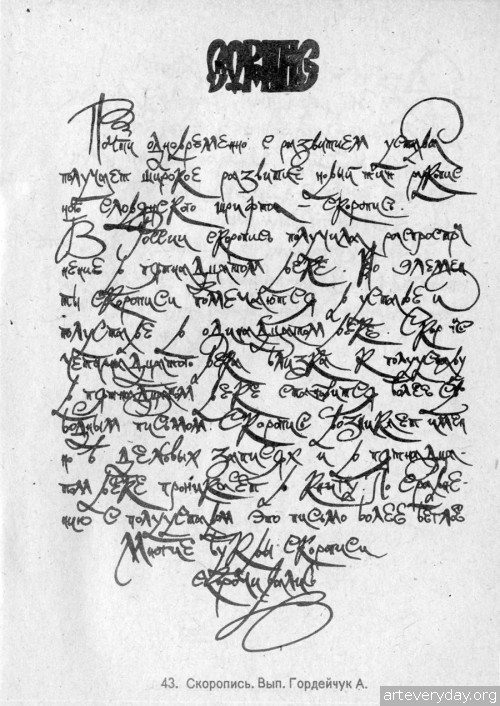 Почти одновременно с развитием устава
получает широкое развитие новый тип рукопис
ного словянского шрифта скоропись.
В России скоропись получила распростра
нение в пятнадцатом веке. Но элемен
ты скорописи помечаются в уставе и
полууставе в одинадцатом веке. Скоропись
четырнадцатого века близка к полууставу
в пятнадцатом веке становится более сво
бодным письмом. Скоропись возникает имен
но в деловых записях и в пятнадца-
том веке проникает в книгу. По сравне-
нию с полууставом это письмо более беглое
Многие буквы скорописи
43. Скоропись. Вып. Гордейчук А.
arteveryday.org